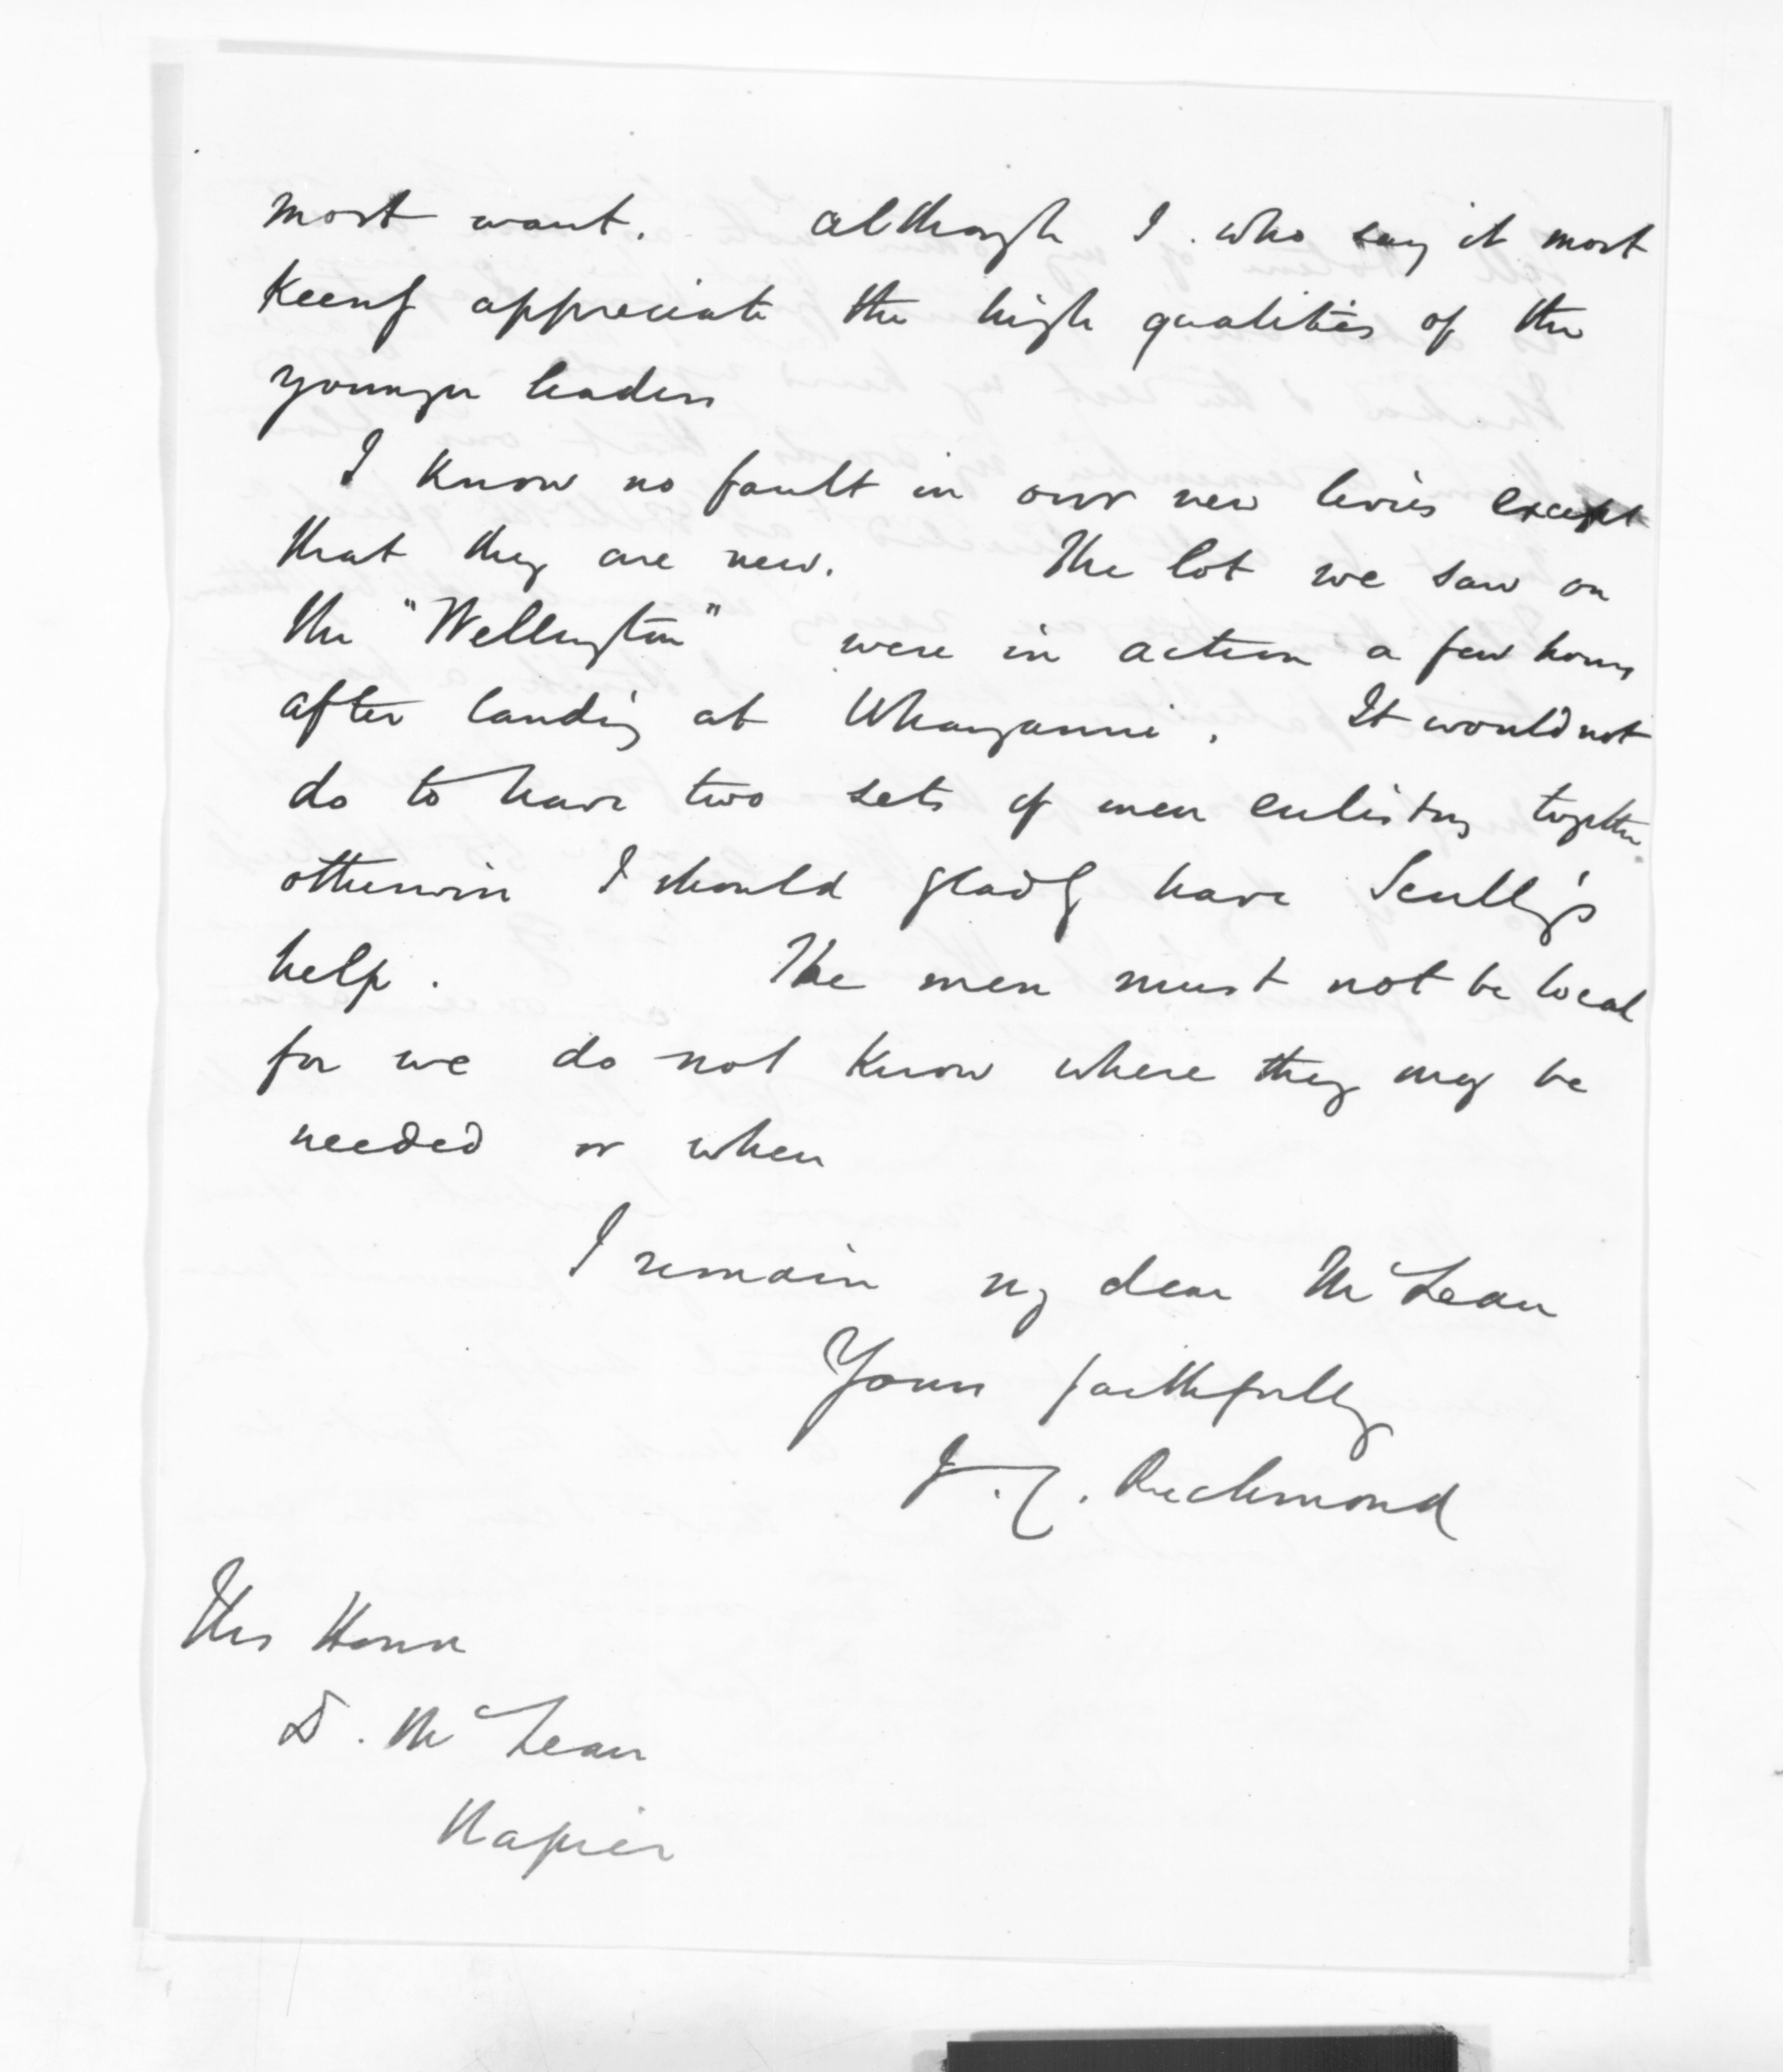 most want. although I who say it most
keenly appreciate the high qualities of the
younger leaders
I know no fault in our new levies except
that they are new. The lot we saw on
the "Wellington" were in action a few hours
after landing at Whanganui. It would not
do to have two sets of men enlisting together
otherwise I should gladly have Scully's
help. The men must not be local
for we do not know where they may be
needed or when
I remain my dear McLean
Yours faithfully
J.C. Richmond
His Honor
D. McLean
Napier